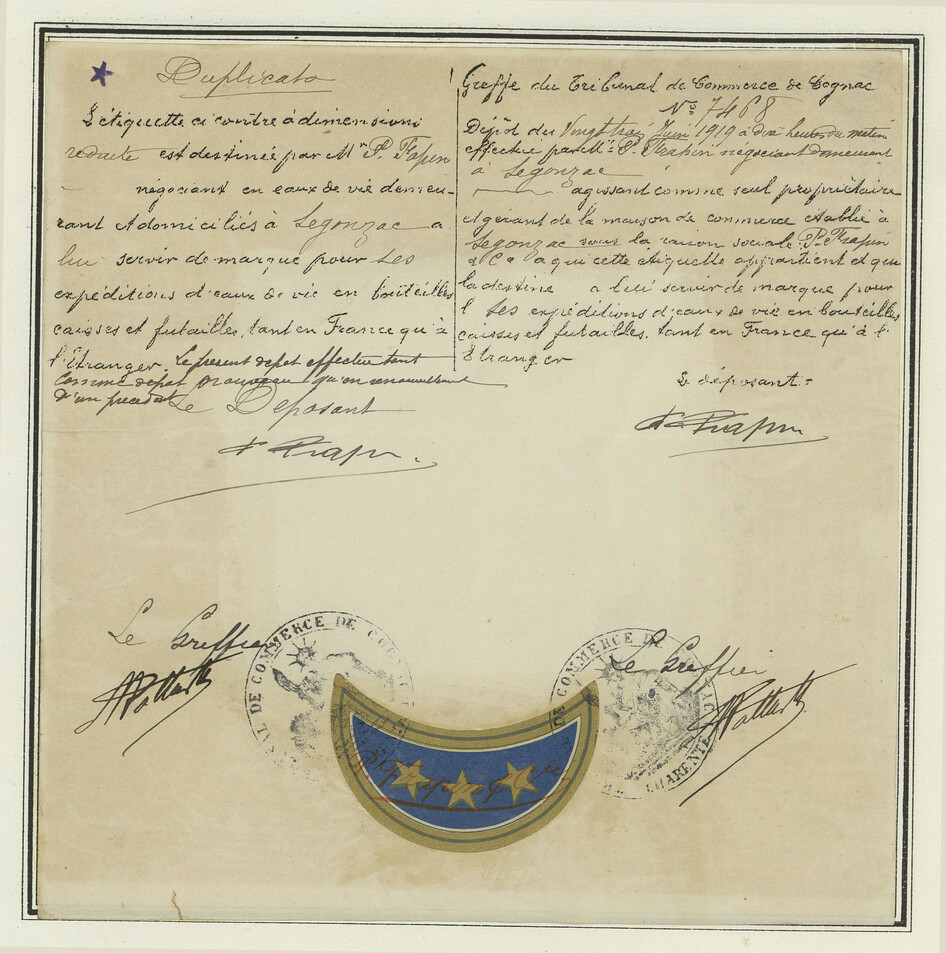 Duplicata
L'étiquette ci contre à dimensions
réduite est destinée par Mr P. Frapin
négociant en eaux de vie demeu-
rant et domiciliés à Segonzac a
lui servir de marque pour ses
expéditions d'eaux de vie en bouteilles
caisses et futailles, tant en France qu'à
l'étranger. Le present depot effectué tant
comme depot nouveau qu'en renouvellement
d'un precedent
Le Deposant
P. Frapin
Greffe du Tribunal de Commerce de Cognac
No 7468
Dépôt du Vingt trois Juin 1919 à dix heures du matin
effectué par Mr P. Frapin négociant demeurant
à Segonzac
agissant comme seul propriétaire
et gérant de la maison de commerce établie à
Segonzac sous la raison sociale P. Frapin
& Ce a qui cette étiquette appartient et qui
la destine a lui servir de marque pour
ses expéditions d'eaux de vie en bouteilles
caisses et futailles, tant en France qu'à l'
Etranger
Le déposant =
P. Frapin
Le Greffier
DE COMMERCE DE
Le Greffier
DE COMMERCE DE
CHARENTE
P. Frapin & Cie